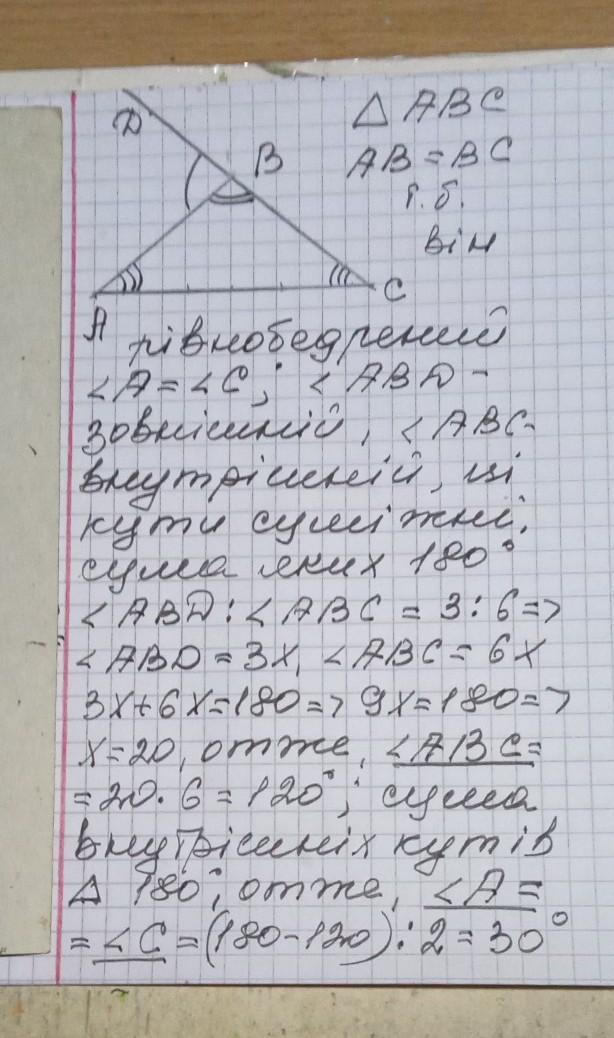 D
B
A
C
△ ABC
AB = BC
т. б.
він
рівнобедрений
∠A = ∠C; ∠ABD -
зовнішній, ∠ABC -
внутрішній, ці
кути суміжні,
сума яких 180°
∠ABD : ∠ABC = 3 : 6 =>
∠ABD = 3x, ∠ABC = 6x
3x+6x=180 => 9x=180 =>
x=20, отже, ∠ABC =
= 20 · 6 = 120°; сума
внутрішніх кутів
△ 180°, отже, ∠A =
= ∠C = (180-120) : 2 = 30°